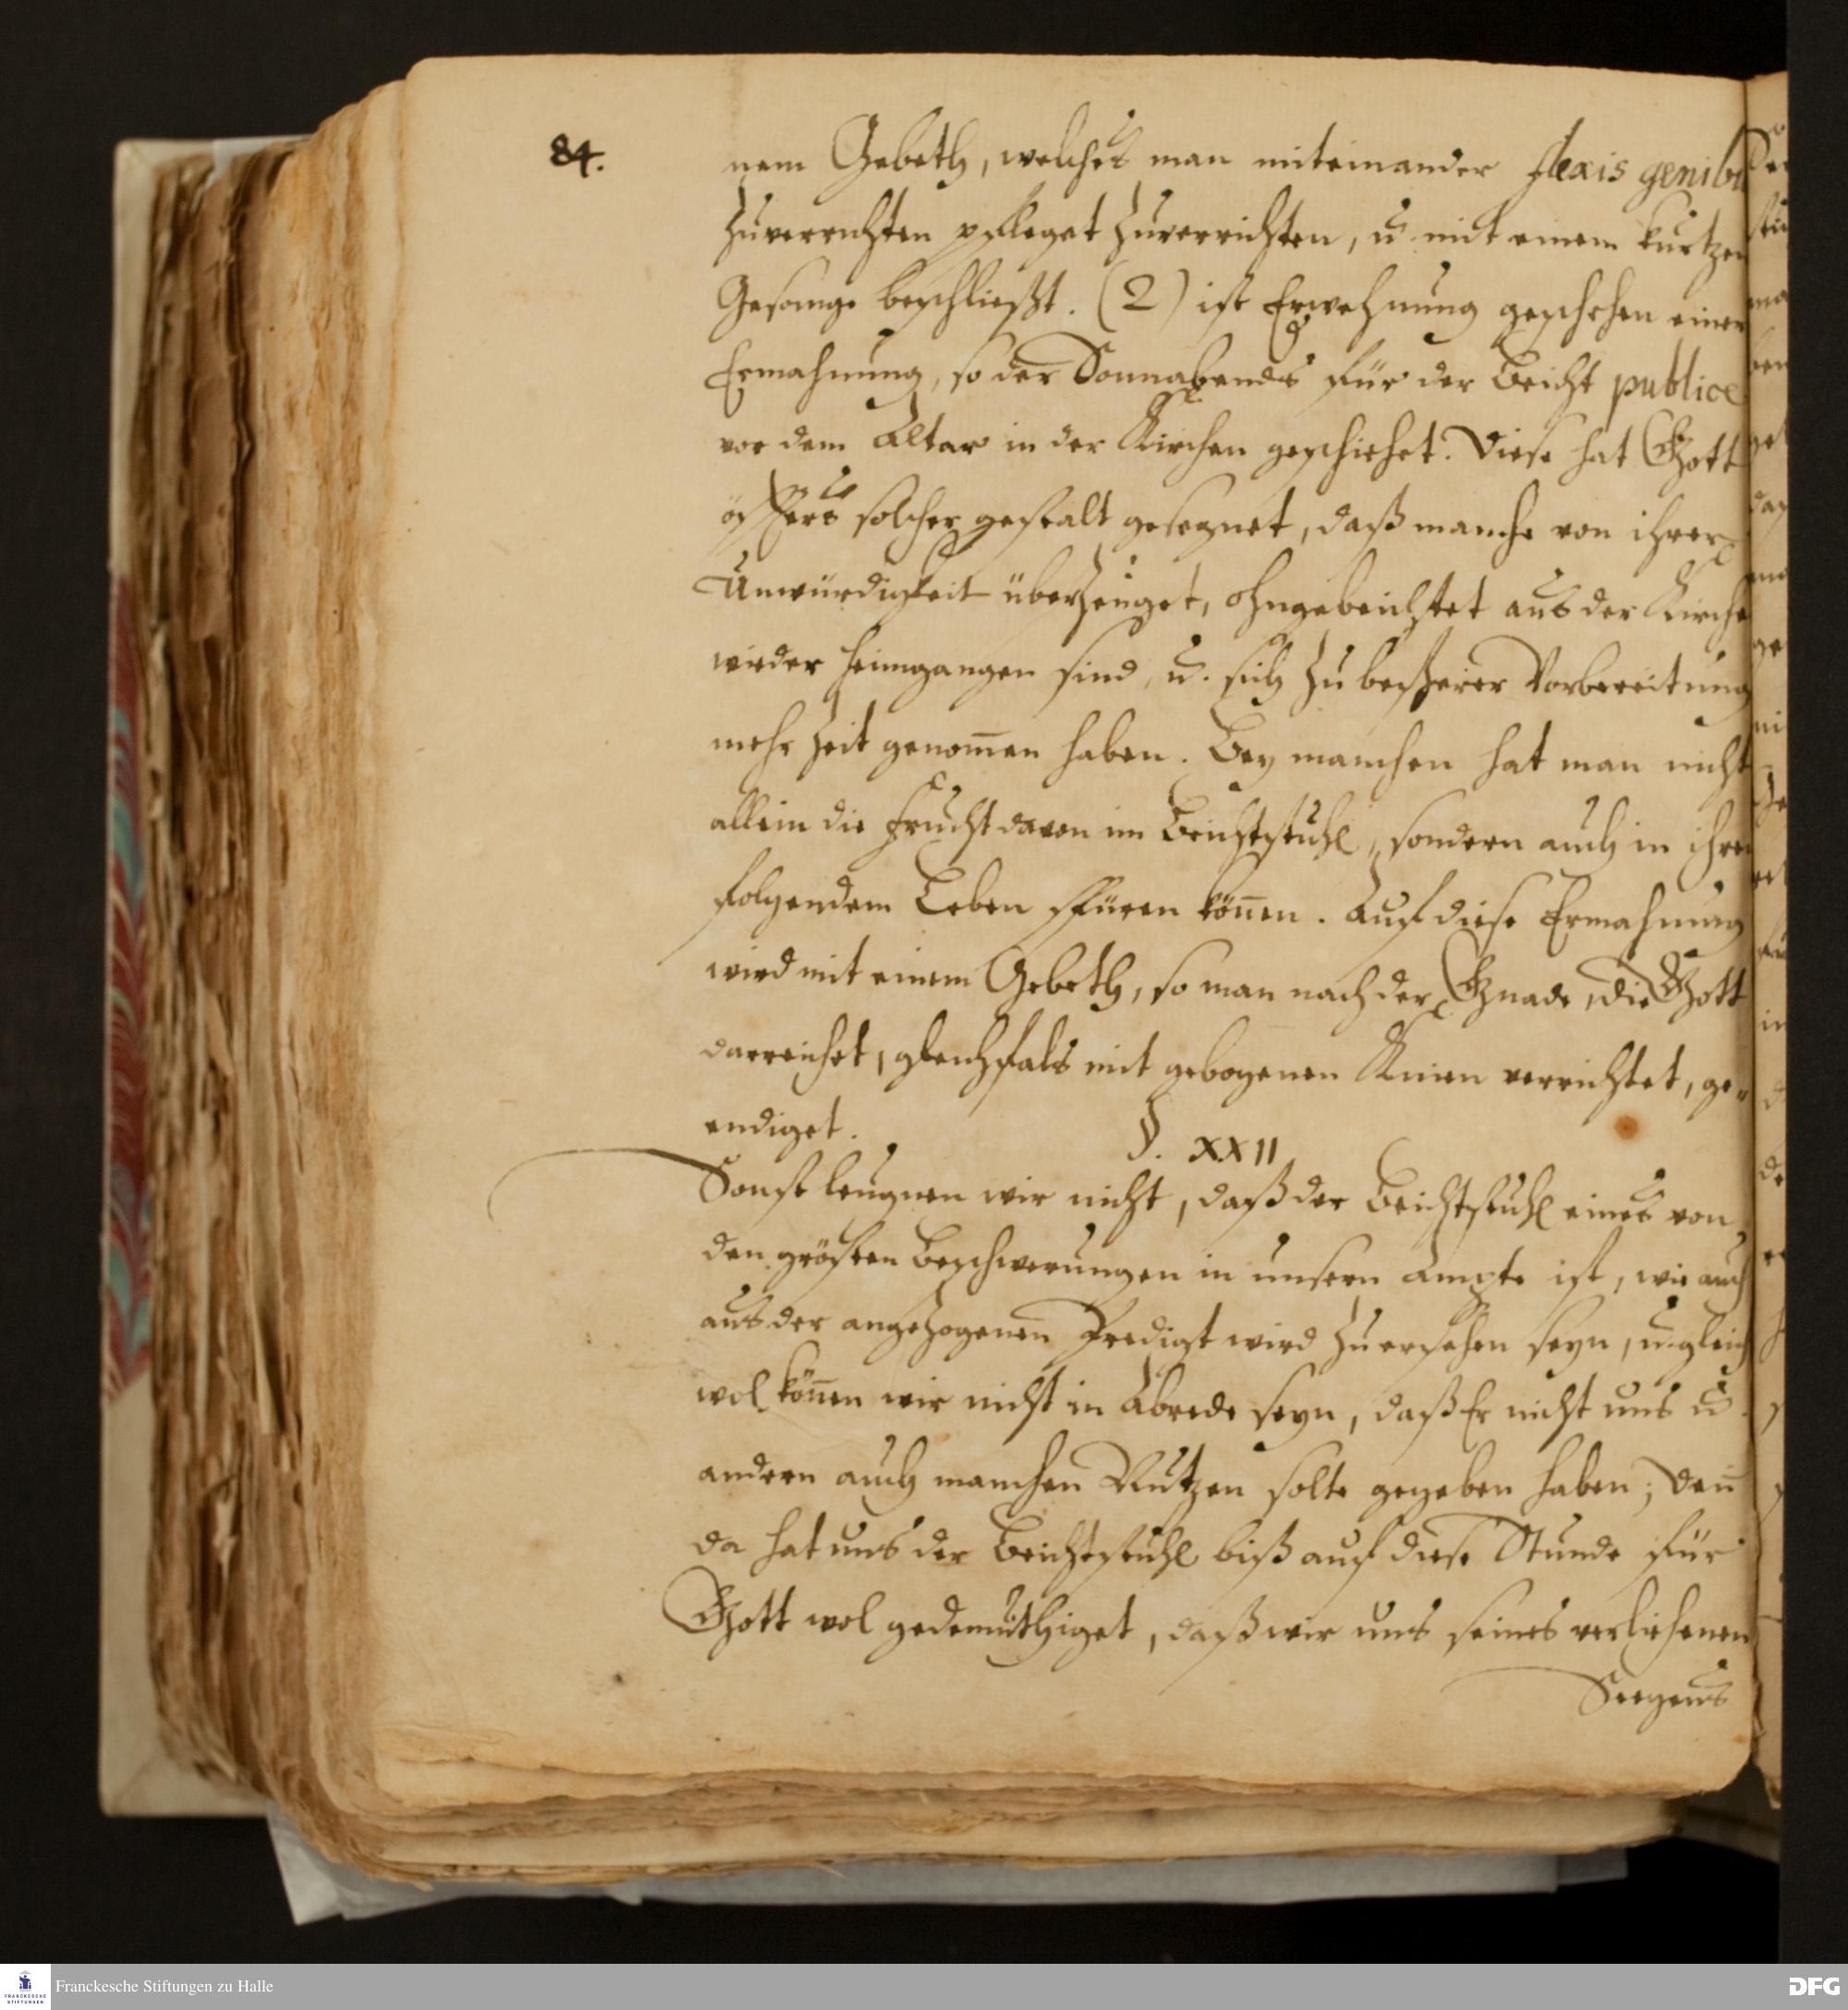 84.
nem Gebeth, welches man miteinander flexis genibu
zuverrichten pfleget zuverrichten, u. mit einem kurtzen
Gesange beschließt. (2) ist Erwehnung geschehen einer
Ermahnung, so der Sonnabends für der Beicht publice
vor dem Altar in der Kirchen geschiehet. Diese hat Gott
öffters solcher gestalt gesegnet, daß manche von ihrer
Unwürdigkeit überzeuget, ohngebeichtet aus der Kirche
wieder heimgangen sind, u. sich zu beßerer Vorbereitung
mehr Zeit genom̄en haben. Bey manchen hat man nicht
allein die Frucht davon im Beichtstuhl, sondern auch in ihren
folgendem Leben spüren kön̄en. Auf diese Ermahnung
wird mit einem Gebeth, so man nach der Gnade, die Gott
darreichet, gleichfals mit gebogenen Knien verrichtet, ge„
endiget.
§. XXII
Sonst leugnen wir nicht, daß der Beichtstuhl eines von
den grösten Beschwerungen in unserm Ampte ist, wie auch
aus der angezogenen Predigt wird zu ersehen seyn, u. gleich
wol kön̄en wir nicht in Abrede seyn, daß Er nicht uns u.
andern auch manchen Nutzen solte gegeben haben; den̄
da hat uns der Beichtstuhl biß auf diese Stunde für
Gott wol gedemüthiget, daß wir uns seines verliehenen
Seegens
Franckesche Stiftungen zu Halle
FRANCKESCHE
STIFTUNGEN
DFG